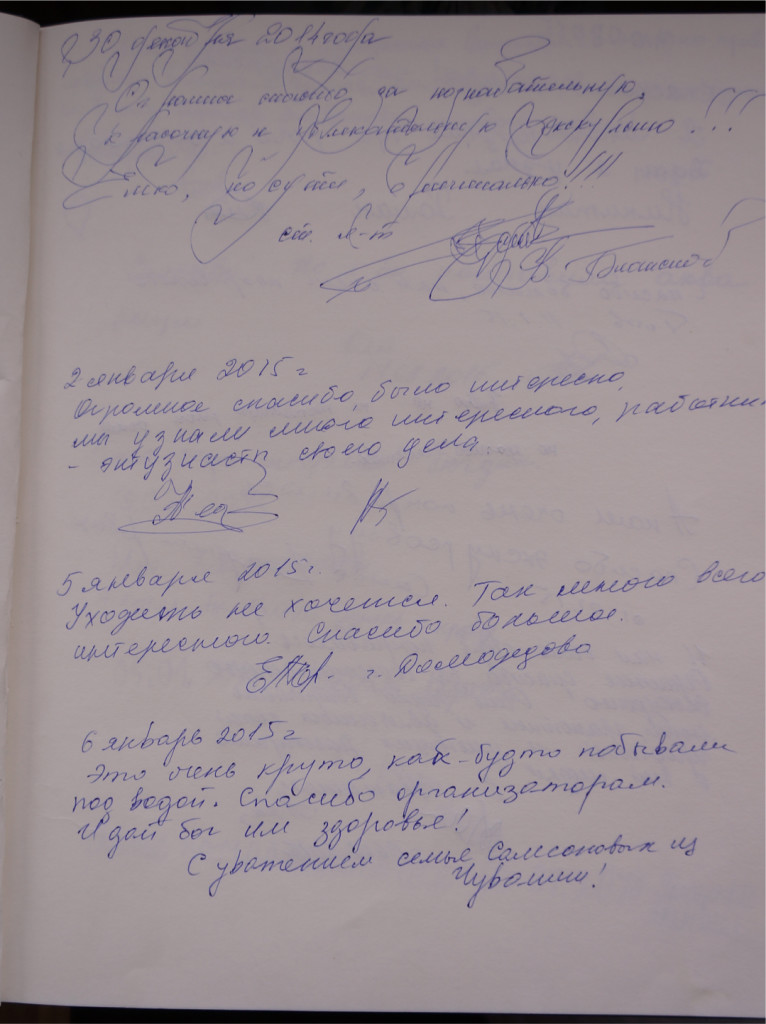 30 декабря 2014 года
Огромное спасибо за познавательную,
красочную и увлекательную экскурсию!!!
Ёмко, по сути, оригинально!!!!
ст. л-т
2 января 2015 г
Огромное спасибо, было интересно,
мы узнали много интересного, работни
- энтузиасты своего дела
5 января 2015 г.
Уходить не хочется. Так много всего
интересного. Спасибо большое.
г. Домодедова
6 январь 2015 г
Это очень круто, как-будто побывали
под водой. Спасибо организаторам.
И дай бог им здоровья!
С уважением семья Самсоновых из
Чувашии!